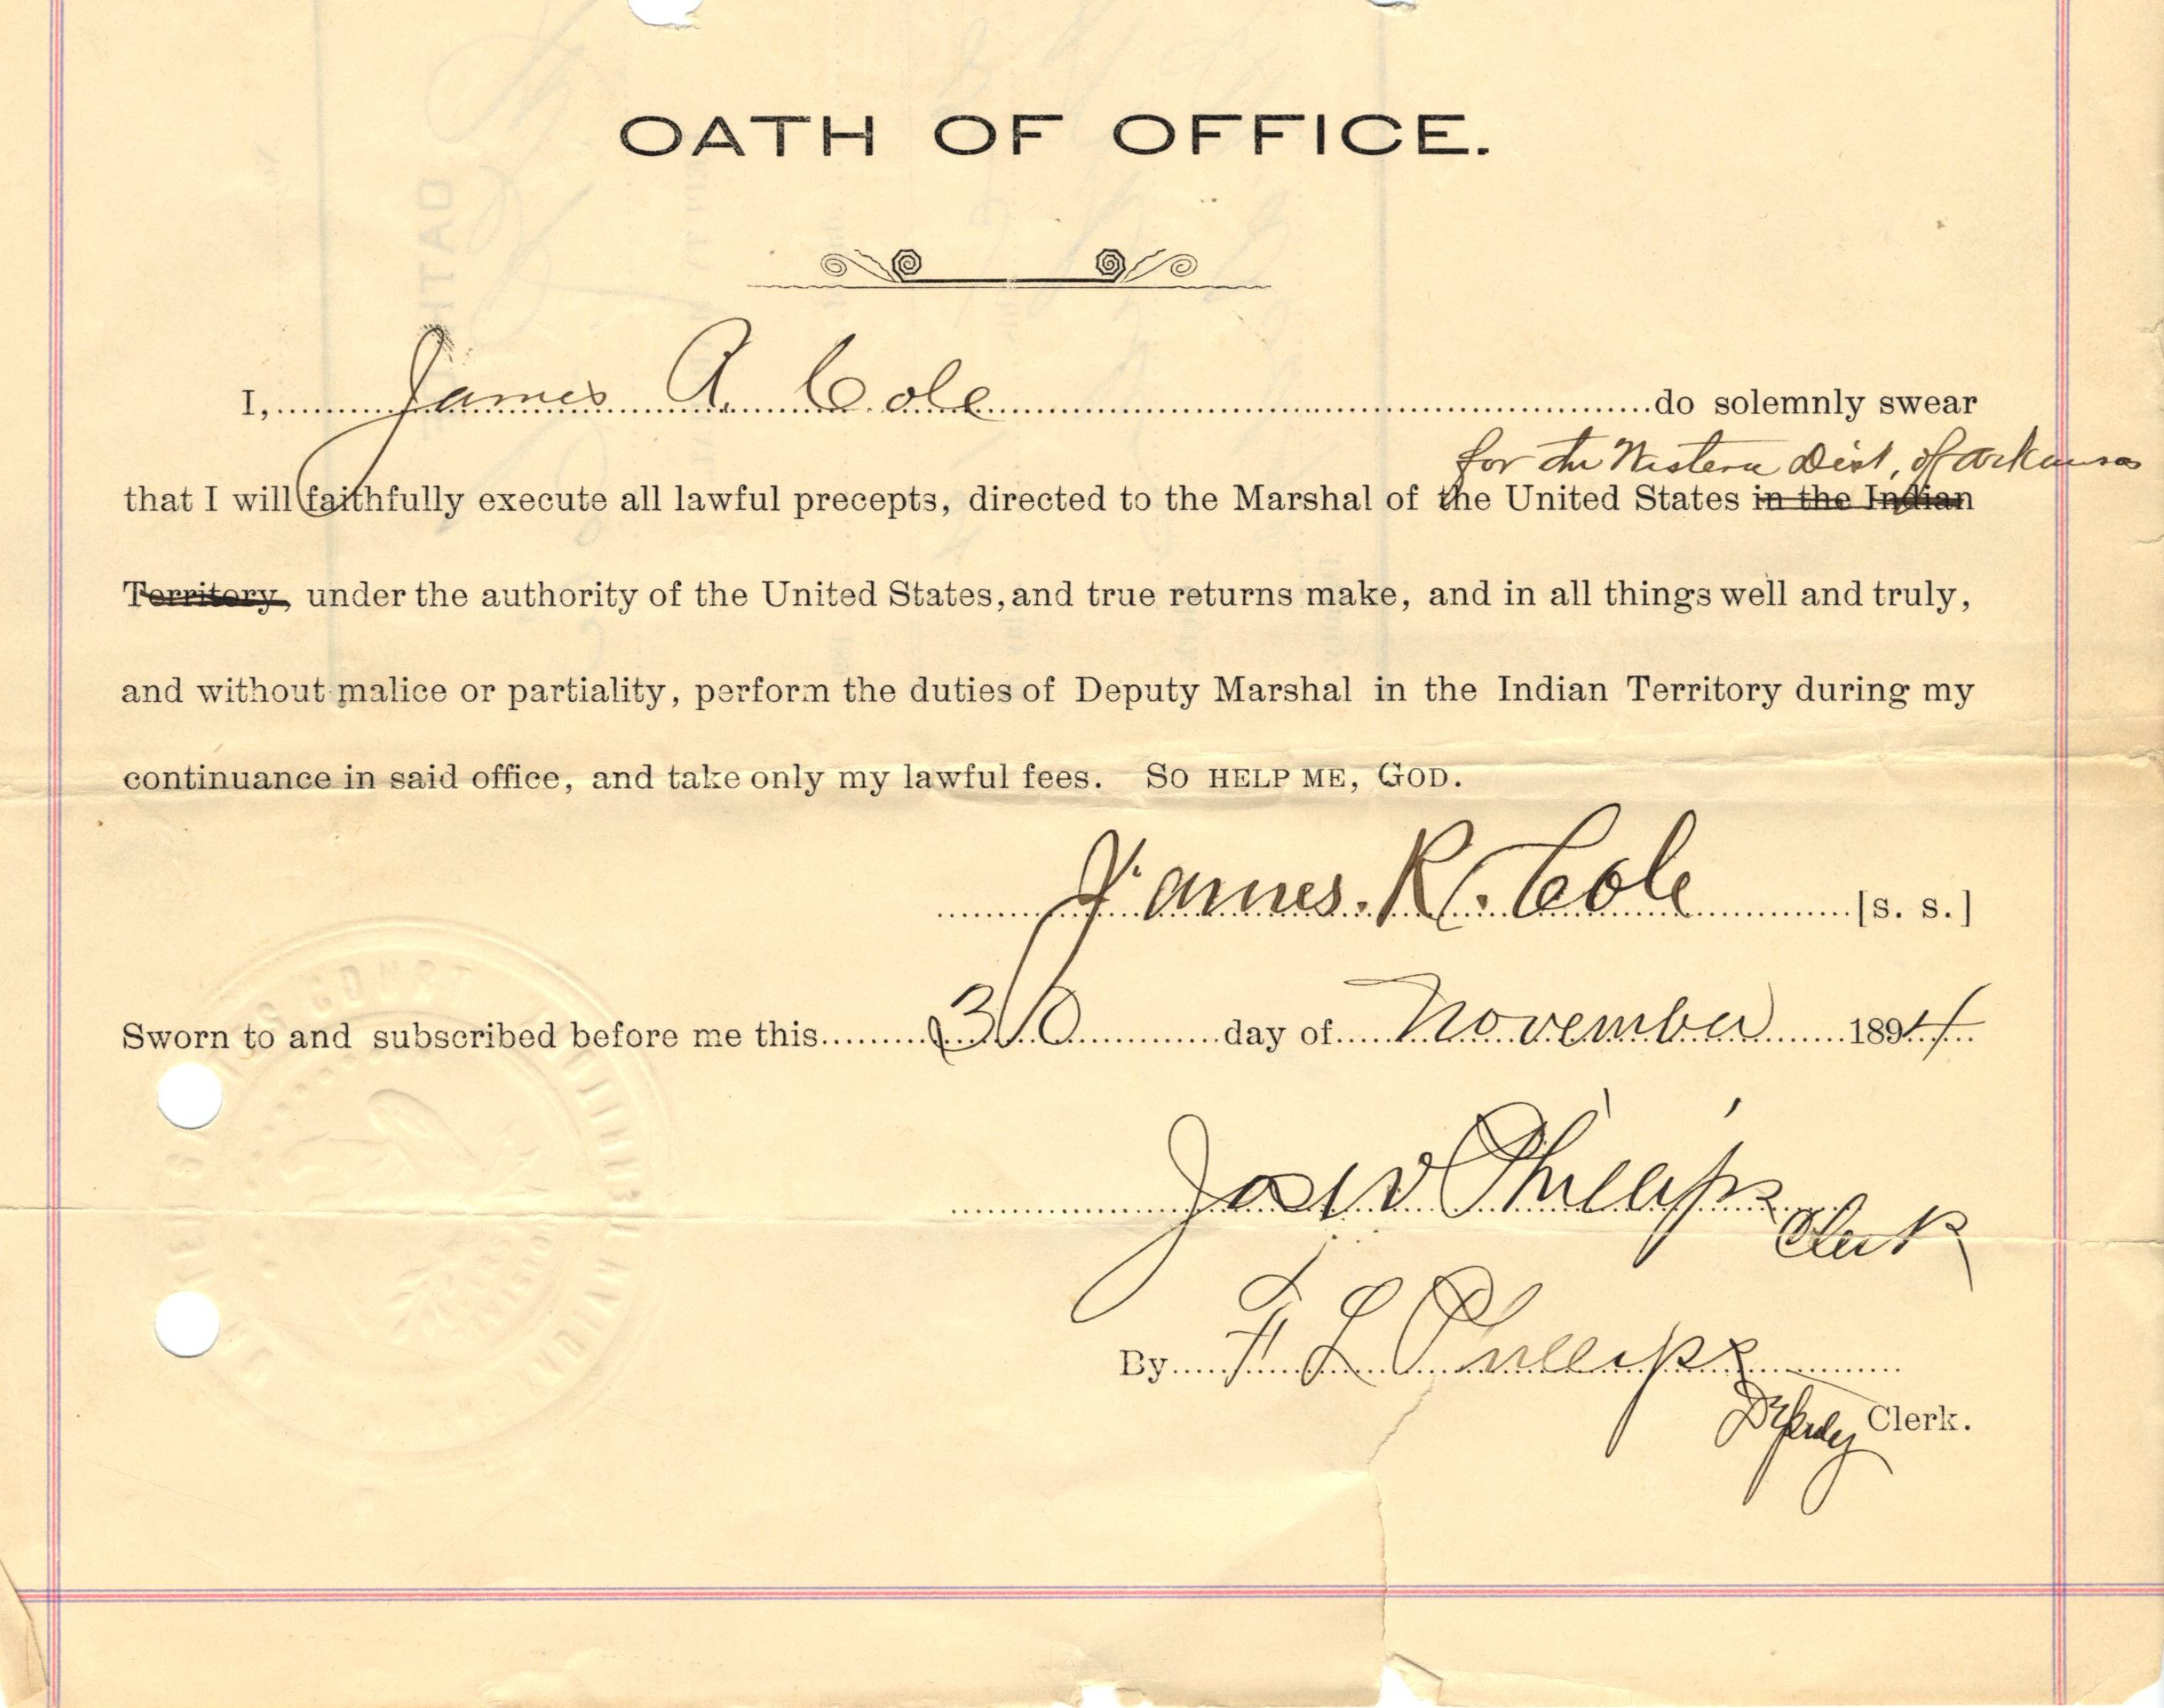 OATH OF OFFICE.
I, James A. Cole do solemnly swear
for the Western Dist, of Arkansas
that I will faithfully execute all lawful precepts, directed to the Marshal of the United States in the Indian
Territory, under the authority of the United States, and true returns make, and in all things well and truly,
and without malice or partiality, perform the duties of Deputy Marshal in the Indian Territory during my
continuance in said office, and take only my lawful fees. SO HELP ME, GOD.
James. R. Cole [S. S.]
Sworn to and subscribed before me this 30 day of November 1894
Jos W Phillips
Clerk
By F L Phillips
Deputy Clerk.
COURT